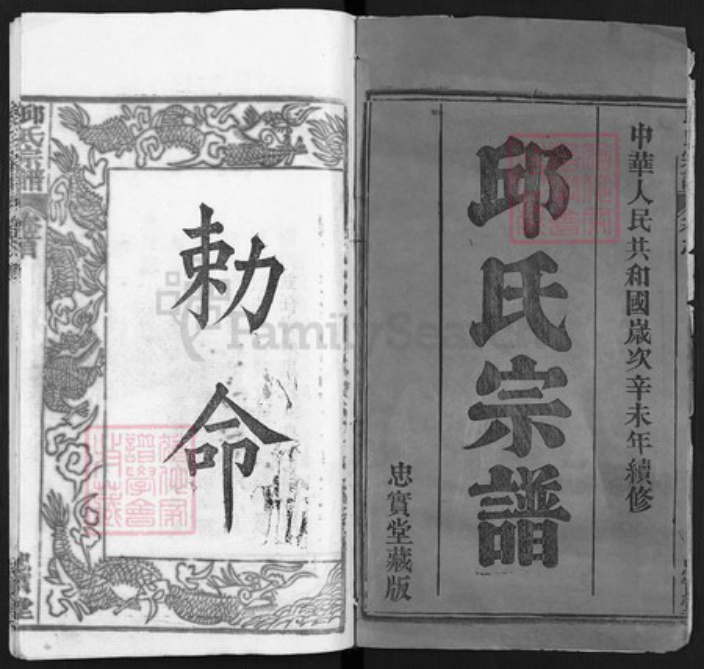 中華人民共和國歲次辛未年續修
邱氏宗譜
忠實堂藏版
勅命
邱氏宗譜
卷首
FamilySearch